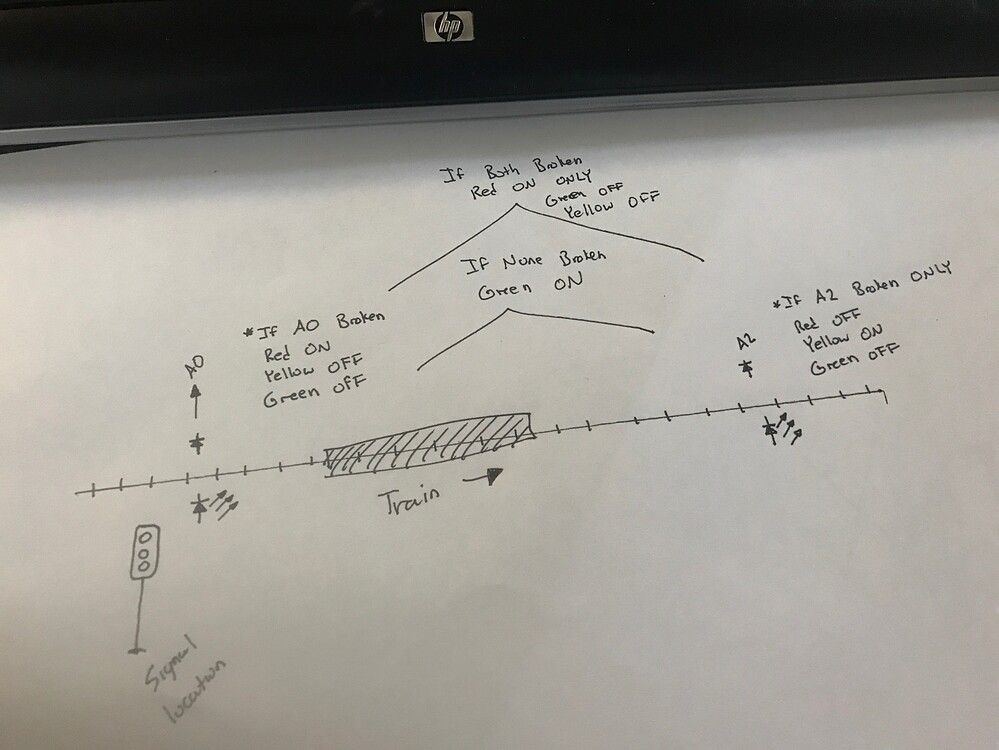 hp
If Both Broken
Red ON ONLY
Green OFF
Yellow OFF
If None Broken
Green ON
*If A0 Broken
Red ON
Yellow OFF
Green OFF
A0
*If A2 Broken ONLY
Red OFF
Yellow ON
Green OFF
A2
Train
Signal
location